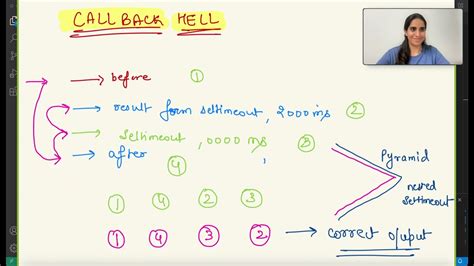 CALLBACK HELL
→ before ①
→ result form settimeout, 2000ms ②
→ settimeout, 0000 ms ③
→ after , ④
Pyramid
nested
settimeout
① ④ ② ③
① ④ ③ ② → correct o/put